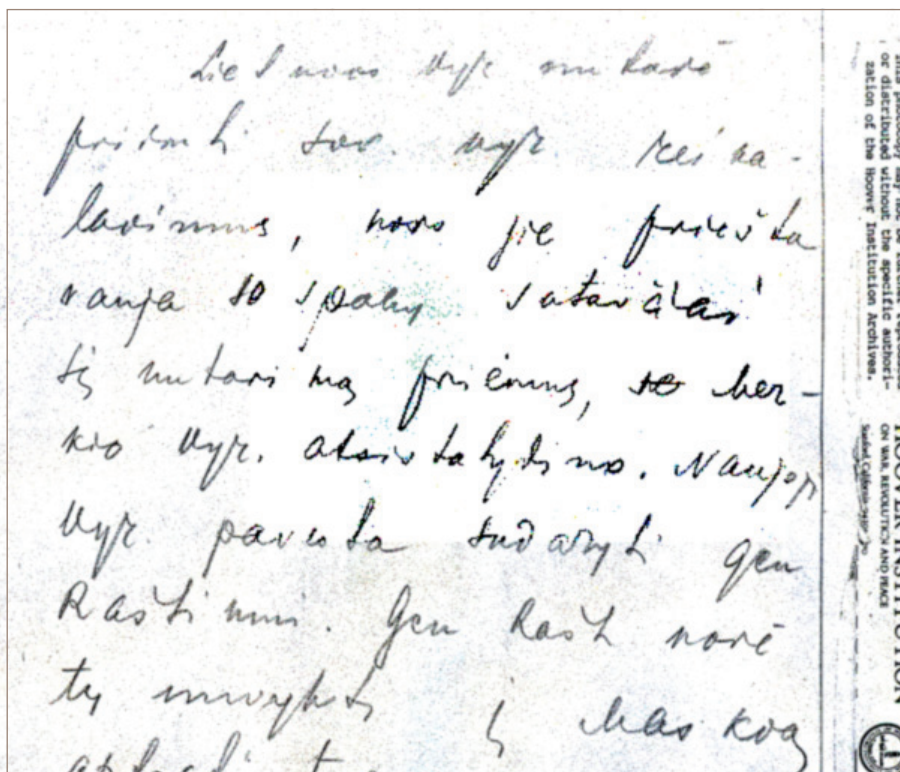 Lietuvos vyr nutarė
priimti sov. vyr reika-
lavimus, nors jie priešta
rauja 10 spalių sutarčiai
šį nutarimą priėmus,
Mer-
kio vyr. atsistatydino. Naujoji
vyr pavesta sudaryti gen
Raštikiui. Gen Rašt norė
tų nuvykti į Maskvą
or distributed without the specific authori-
zation of the Hoover Institution Archives.
HOOVER INSTITUTION
ON WAR, REVOLUTION AND PEACE